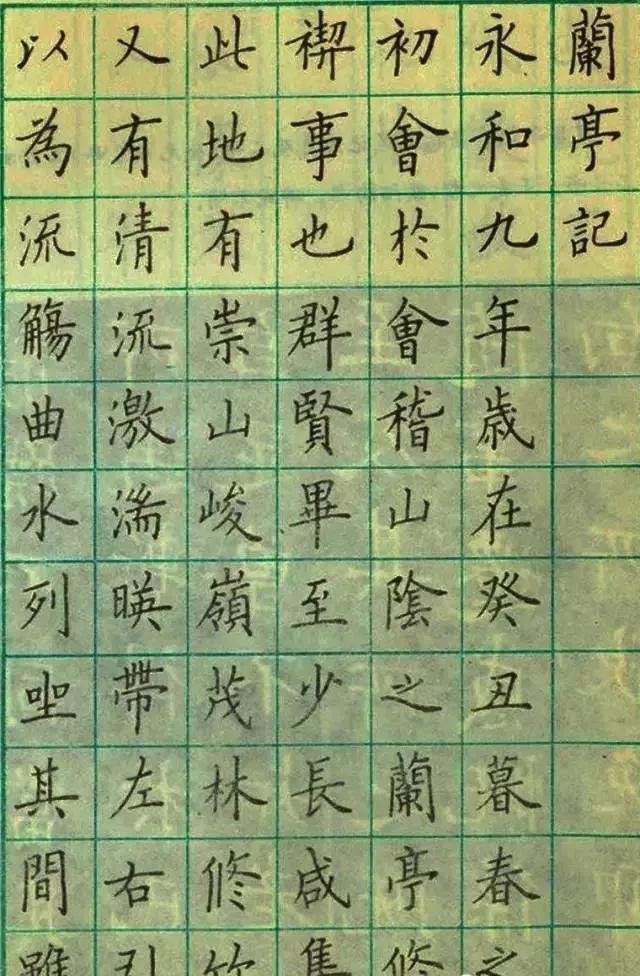 蘭亭記
永和九年歲在癸丑暮春之
初會於會稽山陰之蘭亭修
禊事也群賢畢至少長咸集
此地有崇山峻嶺茂林修竹
又有清流激湍暎帶左右引
以為流觴曲水列坐其間雖